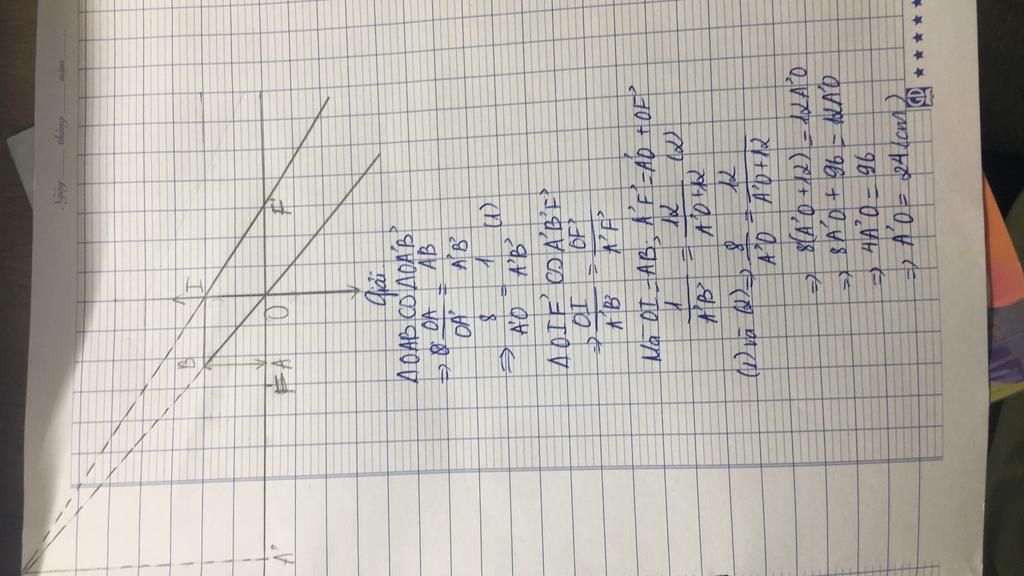 Ngày tháng năm
B I
F A O F'
A'
Giải
ΔOAB ∽ ΔOA'B'
=> OA/OA' = AB/A'B'
=> 8/A'O = 1/A'B' (1)
ΔOIF' ∽ A'B'F'
=> OI/A'B' = OF'/A'F'
Mà OI = AB, A'F' = A'O + OF'
1/A'B' = 12/A'O+12 (2)
(1) và (2) => 8/A'O = 12/A'O+12
=> 8(A'O + 12) = 12A'O
=> 8A'O + 96 = 12A'O
=> 4A'O = 96
=> A'O = 24 (cm)